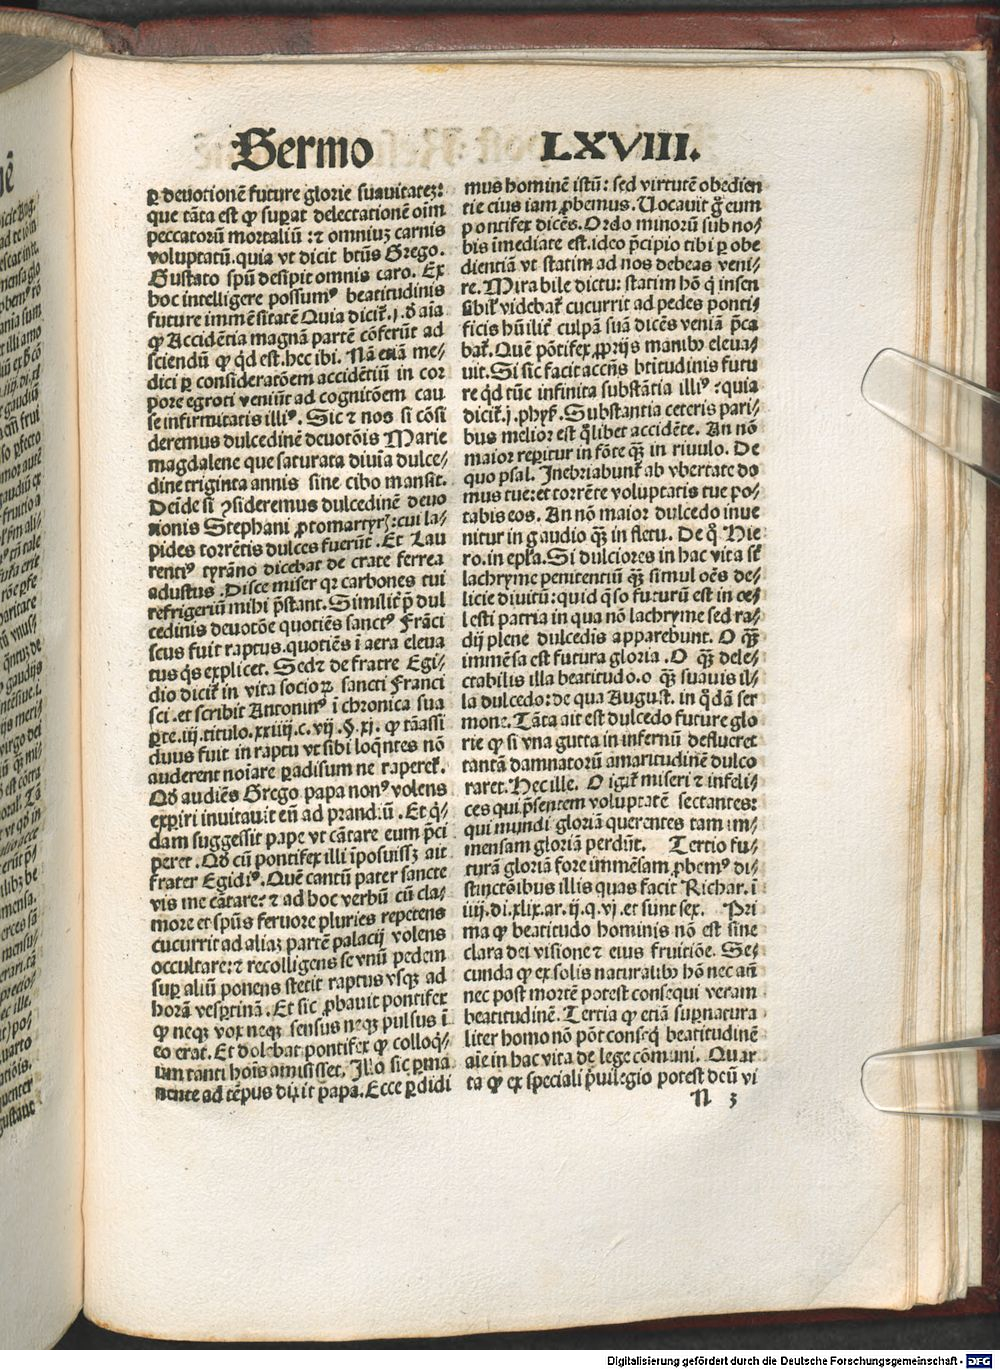 Sermo LXVIII.
ꝑ deuotionē future glorie suauitatez:
que tāta est ꝙ suꝑat delectationē oīm
peccatorū mortaliū : ⁊ omniuꝫ carnis
voluptatū. quia vt dicit btūs Grego.
Gustato spū desipit omnis caro. Ex
hoc intelligere possumꝰ beatitudinis
future immēsitatē Quia dicit̄. j. d̄ aīa
ꝙ Accidētia magnā partē cōferūt ad
sciendū ꝙ qd est. hec ibi. Nā etiā me⸗
dici ꝑ consideratōem accidētiū in cor
pore egroti veniūt ad cognitōem cau
se infirmitatis illiꝰ. Sic ⁊ nos si cōsi
deremus dulcedinē deuotōis Marie
magdalene que saturata diuīa dulce⸗
dine triginta annis sine cibo mansit.
Deīde si ꝯsideremus dulcedinē deuo
tionis Stephani ꝓtomartyrꝭ: cui la⸗
pides torrētis dulces fuerūt. Et Lau
rentiꝰ tyrāno dicebat de crate ferrea
adustus. Disce miser qꝛ carbones tui
refrigeriū mihi p̄stant. Similit̄ p̄ dul
cedinis deuotōe quotiēs sanctꝰ Frāci
scus fuit raptus. quotiēs ī aera eleua
tus q̇s explicet. Sedꝫ de fratre Egi⸗
dio dicit̄ in vita socioꝝ sancti Franci
sci. et scribit Antoninꝰ ī chronica sua
ꝑte. iij. titulo. xxiiij. c. vij. §. xj. ꝙ tā assi
duus fuit in raptu vt sibi loq̄ntes nō
auderent noīare ꝑadisum ne raperet̄.
Qd̓ audiēs Grego papa nonꝰ volens
exꝑiri inuitauit eū ad prandiū. Et q̇⸗
dam suggessit pape vt cātare eum p̄ci
peret. Qd̓ cū pontifex illi īposuissꝫ ait
frater Egidiꝰ. Quē cantū pater sancte
vis me cātare: ⁊ ad hoc verbū cū cla⸗
more et spūs feruore pluries repetens
cucurrit ad aliaꝫ partē palacij volens
occultare: ⁊ recolligens se vnū pedem
suꝑ aliū ponens stetit raptus vsqꝫ ad
horā vesꝑtinā. Et sic ꝓbauit pontifex
ꝙ neqꝫ vox neqꝫ sensus neqꝫ pulsus ī
eo erat. Et dolebat pontifex ꝙ colloq̇⸗
um tanti hoīs amisisset. Illo sic ꝑma
nente ad tēpus dixit papa. Ecce ꝑdidi
mus hominē istū: sed virtutē obedien
tie eius iam ꝓbemus. Uocauit g̊ eum
pontifex dicēs. Ordo minorū sub no⸗
bis īmediate est. ideo p̄cipio tibi ꝑ obe
dientiā vt statim ad nos debeas veni⸗
re. Mirabile dictu: statim hō q̇ insen
sibilꝭ videbat̄ cucurrit ad pedes ponti⸗
ficis hūilit̄ culpā suā dicēs veniā p̄ca
bat̄. Quē pōtifex ꝓprijs manibꝰ eleua⸗
uit. Si sic facit accn̄s btitudinis futu
re qd tūc infinita substātia illiꝰ: quia
dicit̄. j. phyꝭ. Substantia ceteris pari⸗
bus melior est q̇libet accidēte. An nō
maior reperitur in fōte qꝫ in riuulo. De
quo psal. Inebriabunt̄ ab vbertate do
mus tue: et torrēte voluptatis tue po⸗
tabis eos. An nō maior dulcedo inue
nitur in gaudio qꝫ in fletu. De q̊ Hie
ro. in epl̄a. Si dulciores in hac vita st̄
lachryme penitentiū qꝫ simul oēs de⸗
licie diuitū: quid q̄so futurū est in ce⸗
lesti patria in qua nō lachryme sed ra⸗
dij plene dulcedis apparebunt. O qꝫ
immēsa est futura gloria. O qꝫ dele⸗
ctabilis illa beatitudo. o qꝫ suauis il⸗
la dulcedo: de qua August. in q̇dā ser
mone. Tāta ait est dulcedo future glo
rie ꝙ si vna gutta in infernū deflueret
tantā damnatorū amaritudinē dulco
raret. Hec ille. O igit̄ miseri ⁊ infeli⸗
ces qui p̄sentem voluptatē sectantes:
qui mundi gloriā querentes tam im⸗
mensam gloriā perdūt. Tertio fu⸗
turā gloriā fore immēsam ꝓbemꝰ di⸗
stinctōibus illis quas facit Richar. ī
iiij. di. xlix. ar. ij. q. vj. et sunt sex. Pri
ma ꝙ beatitudo hominis nō est sine
clara dei visione ⁊ eius fruitiōe. Se⸗
cunda ꝙ ex solis naturalibꝰ hō nec añ
nec post mortē potest consequi veram
beatitudinē. Tertia ꝙ etiā suꝑnatura
liter homo nō pōt conseq̇ beatitudinē
aīe in hac vita de lege cōmuni. Quar
ta ꝙ ex speciali p̄uilegio potest dcū vi
N 3
Digitalisierung gefördert durch die Deutsche Forschungsgemeinschaft - DFG